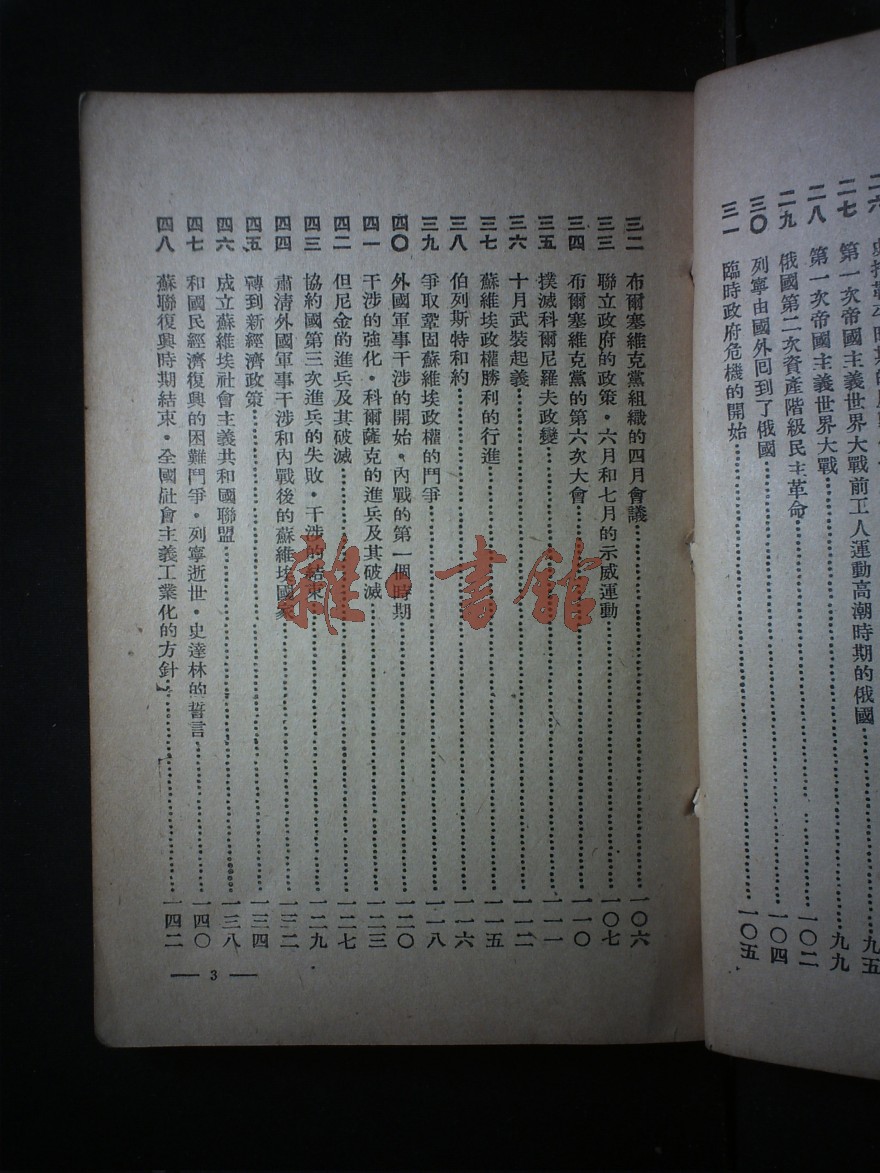 二七 第一次帝國主義世界大戰前工人運動高潮時期的俄國……九五
二八 第一次帝國主義世界大戰……九九
二九 俄國第二次資產階級民主革命……一〇二
三〇 列寧由國外回到了俄國……一〇四
三一 臨時政府危機的開始……一〇五
三二 布爾塞維克黨組織的四月會議……一〇六
三三 聯立政府的政策·六月和七月的示威運動……一〇七
三四 布爾塞維克黨的第六次大會……一一〇
三五 撲滅科爾尼羅夫政變……一一一
三六 十月武裝起義……一一二
三七 蘇維埃政權勝利的行進……一一五
三八 伯列斯特和約……一一六
三九 爭取鞏固蘇維埃政權的鬥爭……一一八
四〇 外國軍事干涉的開始·內戰的第一個時期……一二〇
四一 干涉的強化·科爾薩克的進兵及其破滅……一二三
四二 但尼金的進兵及其破滅……一二七
四三 協約國第三次進兵的失敗·干涉的結束……一二九
四四 肅清外國軍事干涉和內戰後的蘇維埃國家……一三二
四五 轉到新經濟政策……一三四
四六 成立蘇維埃社會主義共和國聯盟……一三八
四七 和國民經濟復興的困難鬥爭·列寧逝世·史達林的誓言……一四〇
四八 蘇聯復興時期結束·全國社會主義工業化的方針……一四二
— 3 —
雜·書館